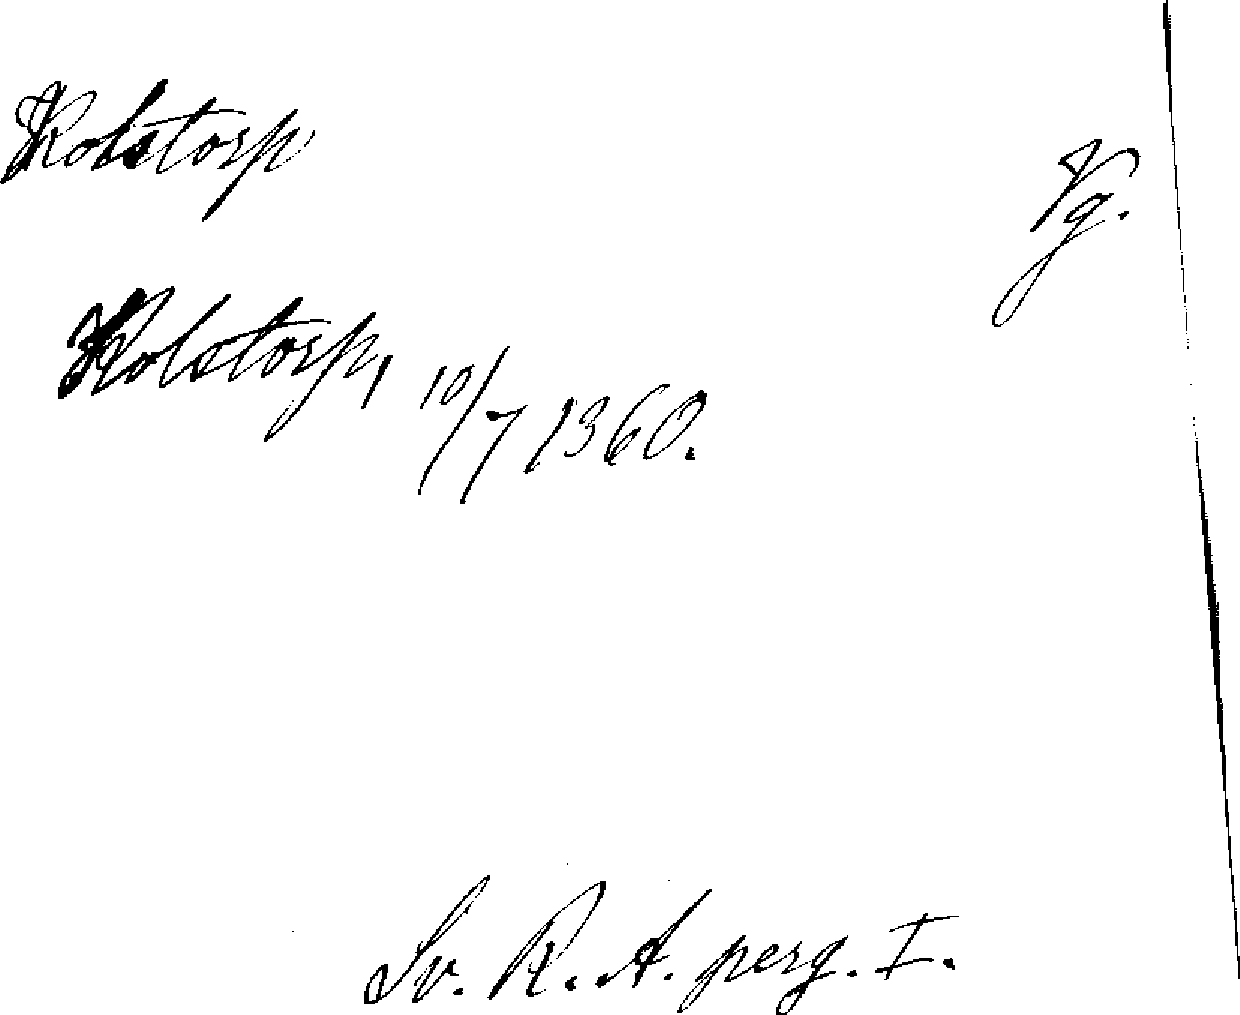 Kolstorp
Vg.
Kolstorp, 10/7 1360.
Sv. R. A. perg. I.